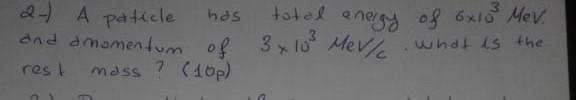 2-) A paticle has total energy of 6x10³ MeV.
and amomentum of 3x10³ MeV/c . what is the
rest mass ? (10p)